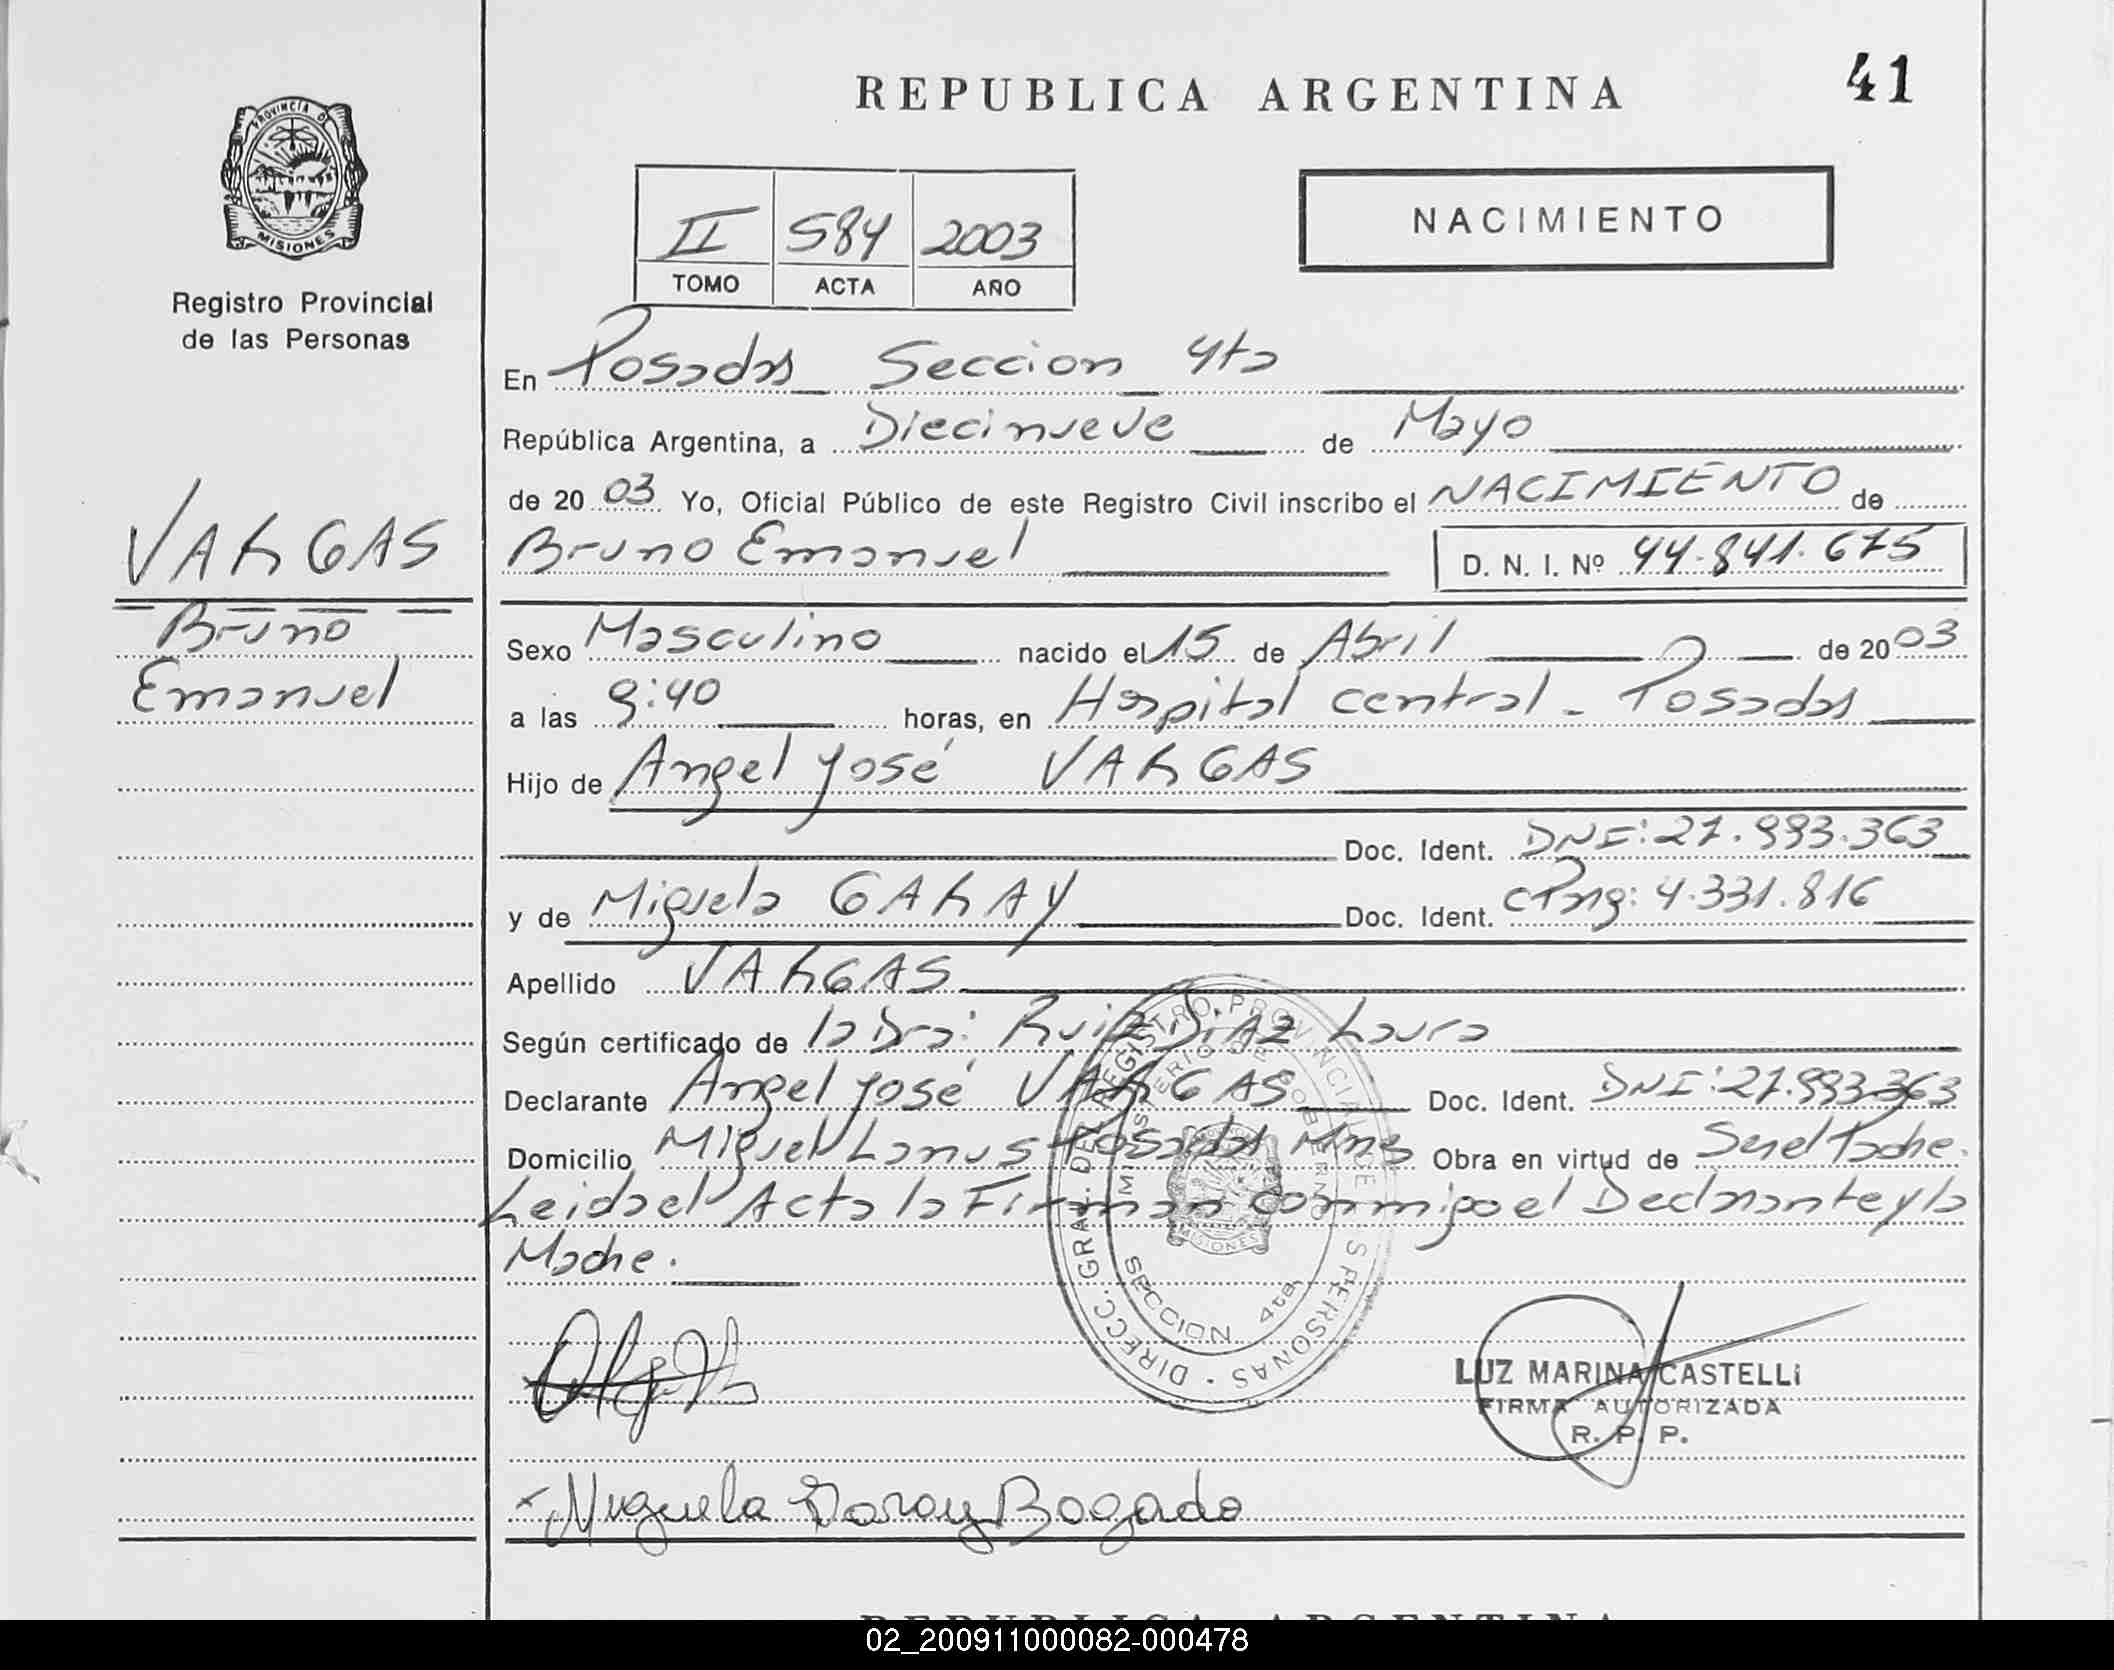 41
REPUBLICA ARGENTINA
PROVINCIA D
MISIONES
Registro Provincial
de las Personas
II 584 2003
TOMO ACTA AÑO
NACIMIENTO
VARGAS
Bruno
Emanuel
En Posadas Seccion 4ta
República Argentina, a Diecinueve de Mayo
de 2003 Yo, Oficial Público de este Registro Civil inscribo el NACIMIENTO de
Bruno Emanuel D. N. I. Nº 44.841.675
Sexo Masculino nacido el 15 de Abril de 2003
a las 9:40 horas, en Hospital central - Posadas
Hijo de Angel José VARGAS
Doc. Ident. DNI: 27.993.363
y de Miguela GARAY Doc. Ident. 4.331.816
Apellido VARGAS
Según certificado de la Dra: Ruiz Diaz Laura
Declarante Angel José VARGAS Doc. Ident. DNI: 27.993.363
Domicilio Miguel Lanus Posadas Mnes Obra en virtud de Ser el Padre.
Leida el Acta la Firman conmigo el Declarante y la
Madre.
DIRECC. GRAL. DEL REGISTRO PROVINCIAL DE LAS PERSONAS
MINISTERIO DE GOBIERNO
MISIONES
SECCION 4ta.
LUZ MARINA CASTELLI
FIRMA AUTORIZADA
R. P. P.
x Miguela Garay Bogado
REPUBLICA ARGENTINA
02_200911000082-000478